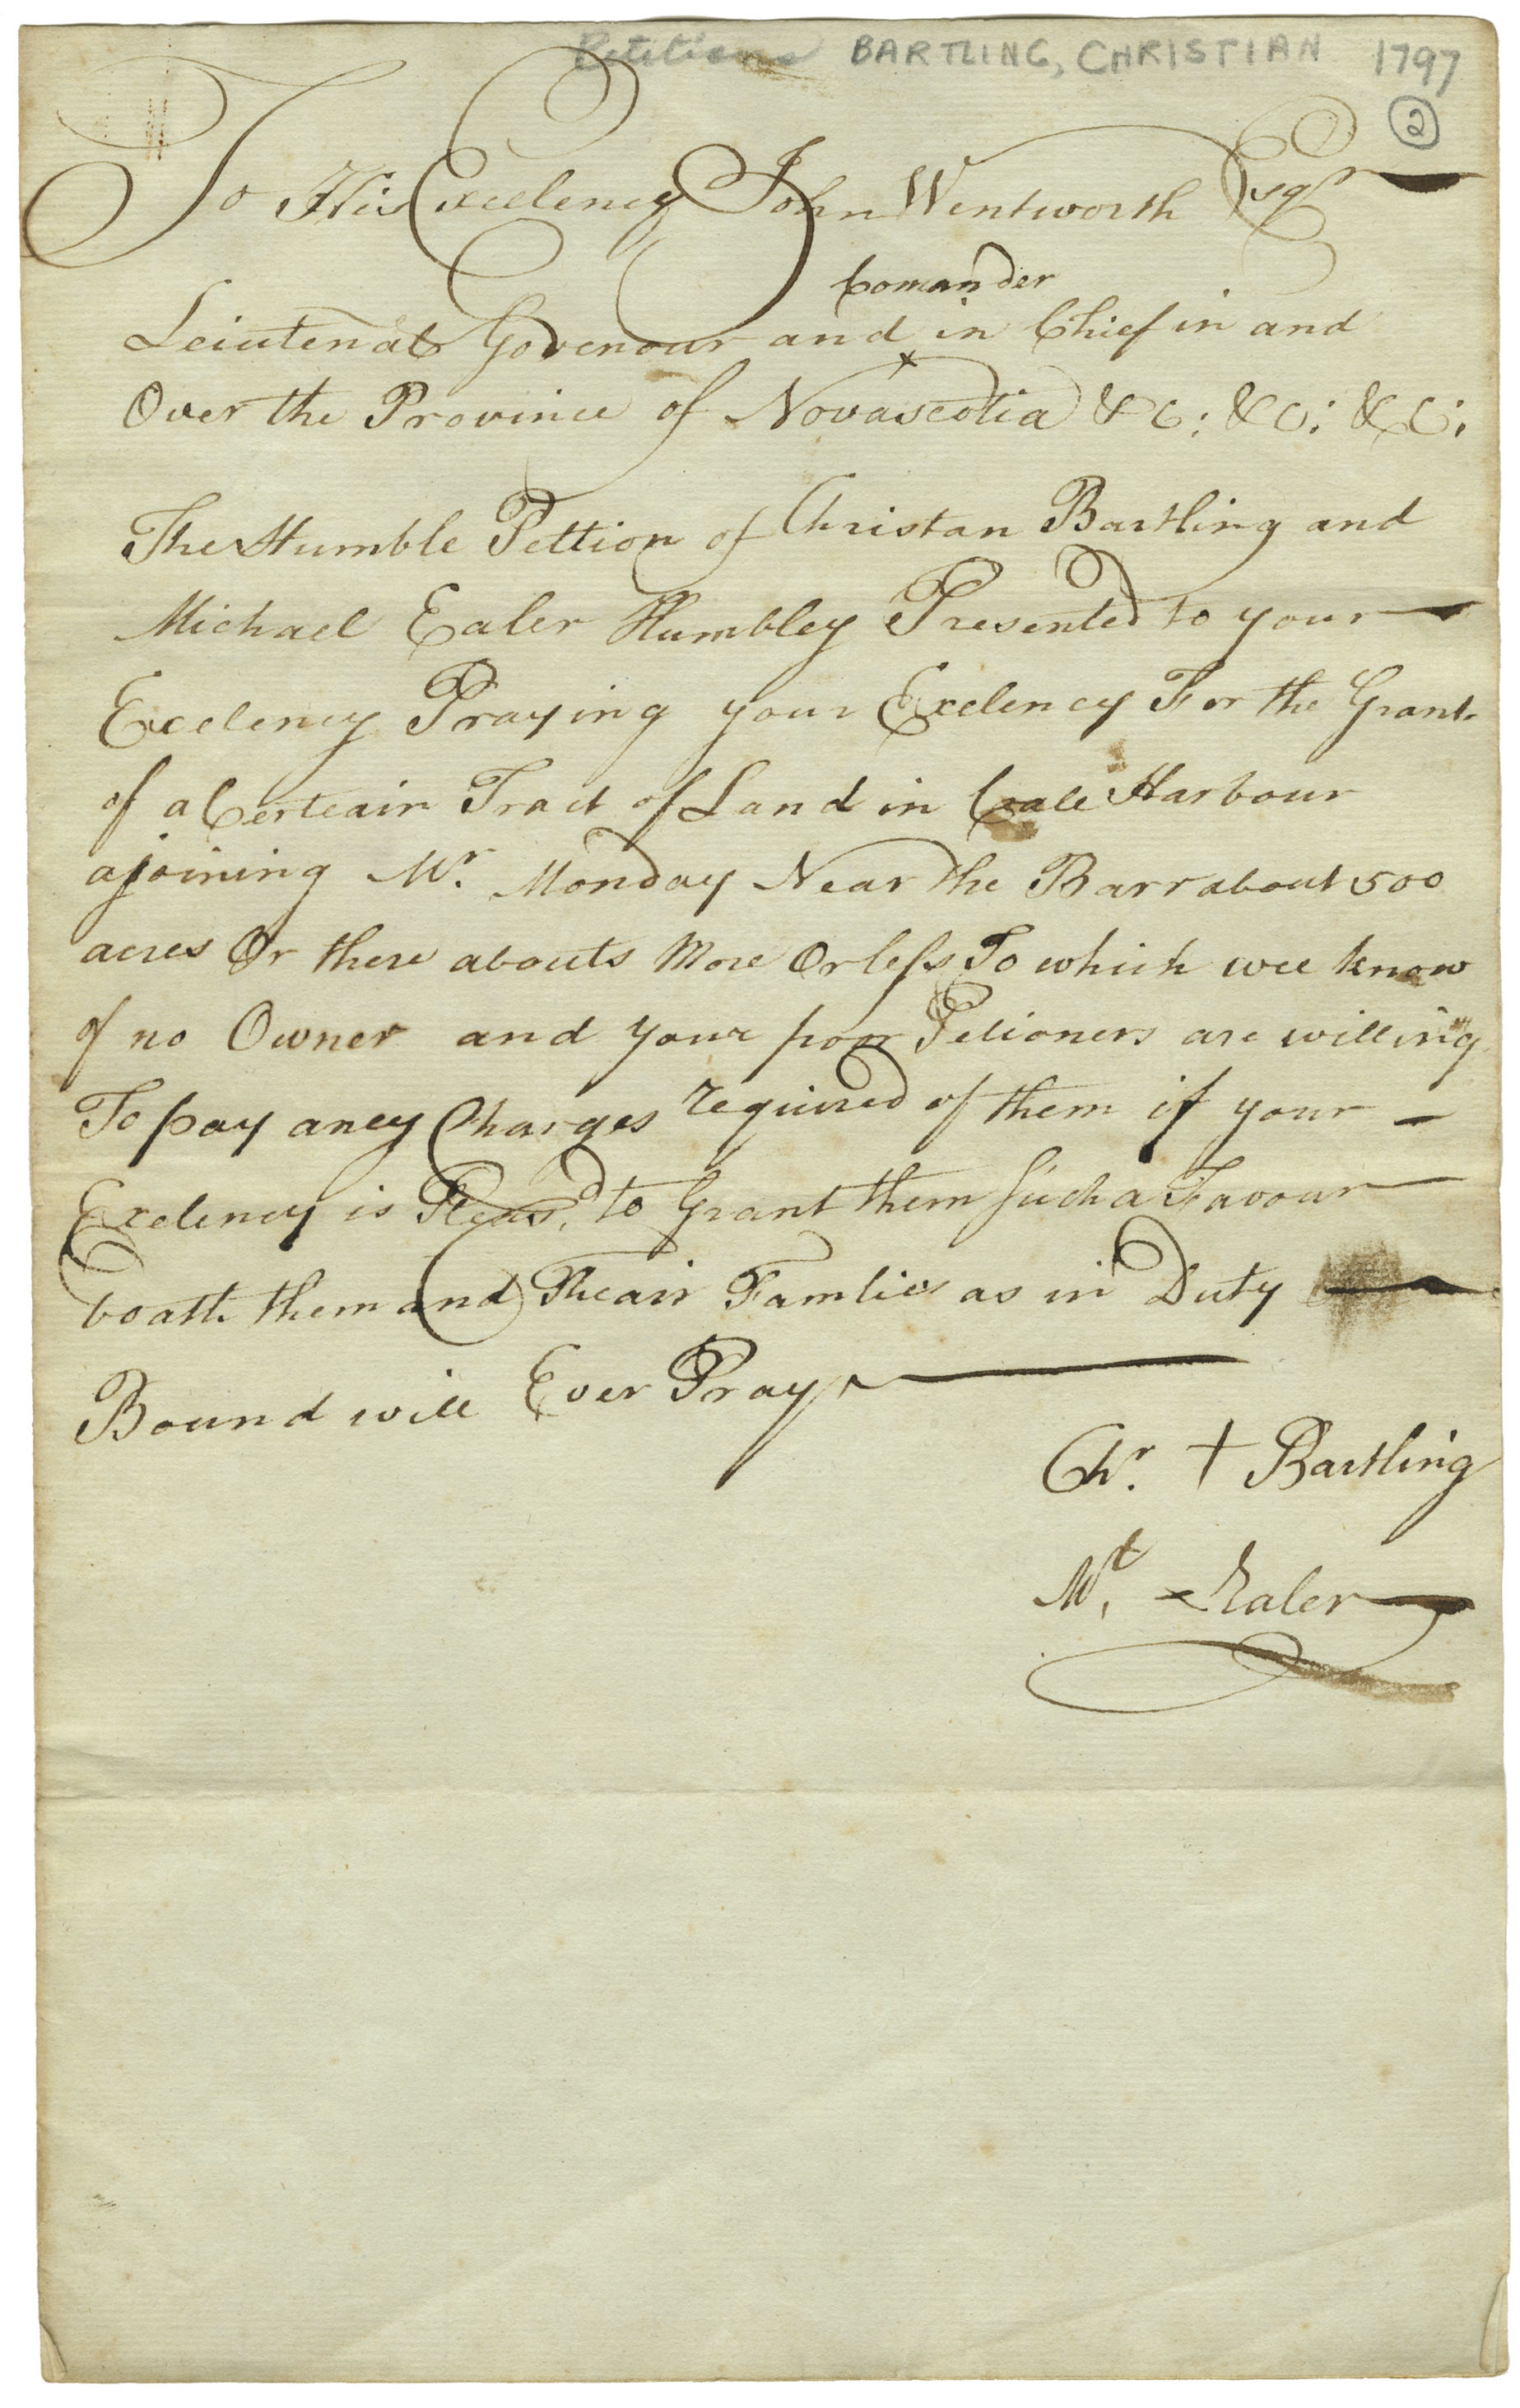 Petitions BARTLING, CHRISTIAN 1797
2
To His Excelency John Wentworth Esqr
Comander
Leiutenat Govenour and in Chief in and
Over the Province of Novascotia &C: &C: &C:
The Humble Pettion of Christan Bartling and
Michael Ealer Humbley Presented to your
Excelency Praying your Exelency For the Grant
of a Certeain Tract of Land in Cole Harbour
ajoining Mr. Monday Near the Barr about 500
acres Or there abouts More Or less To which wee know
of no Owner and your poor Petioners are willing
To pay aney Charges required of them if your
Exelency is Pleasd. to Grant them Such a Favour
boath them and Theair Famlies as in Duty
Bound will Ever Pray
Chr. + Bartling
Ml. x Ealer